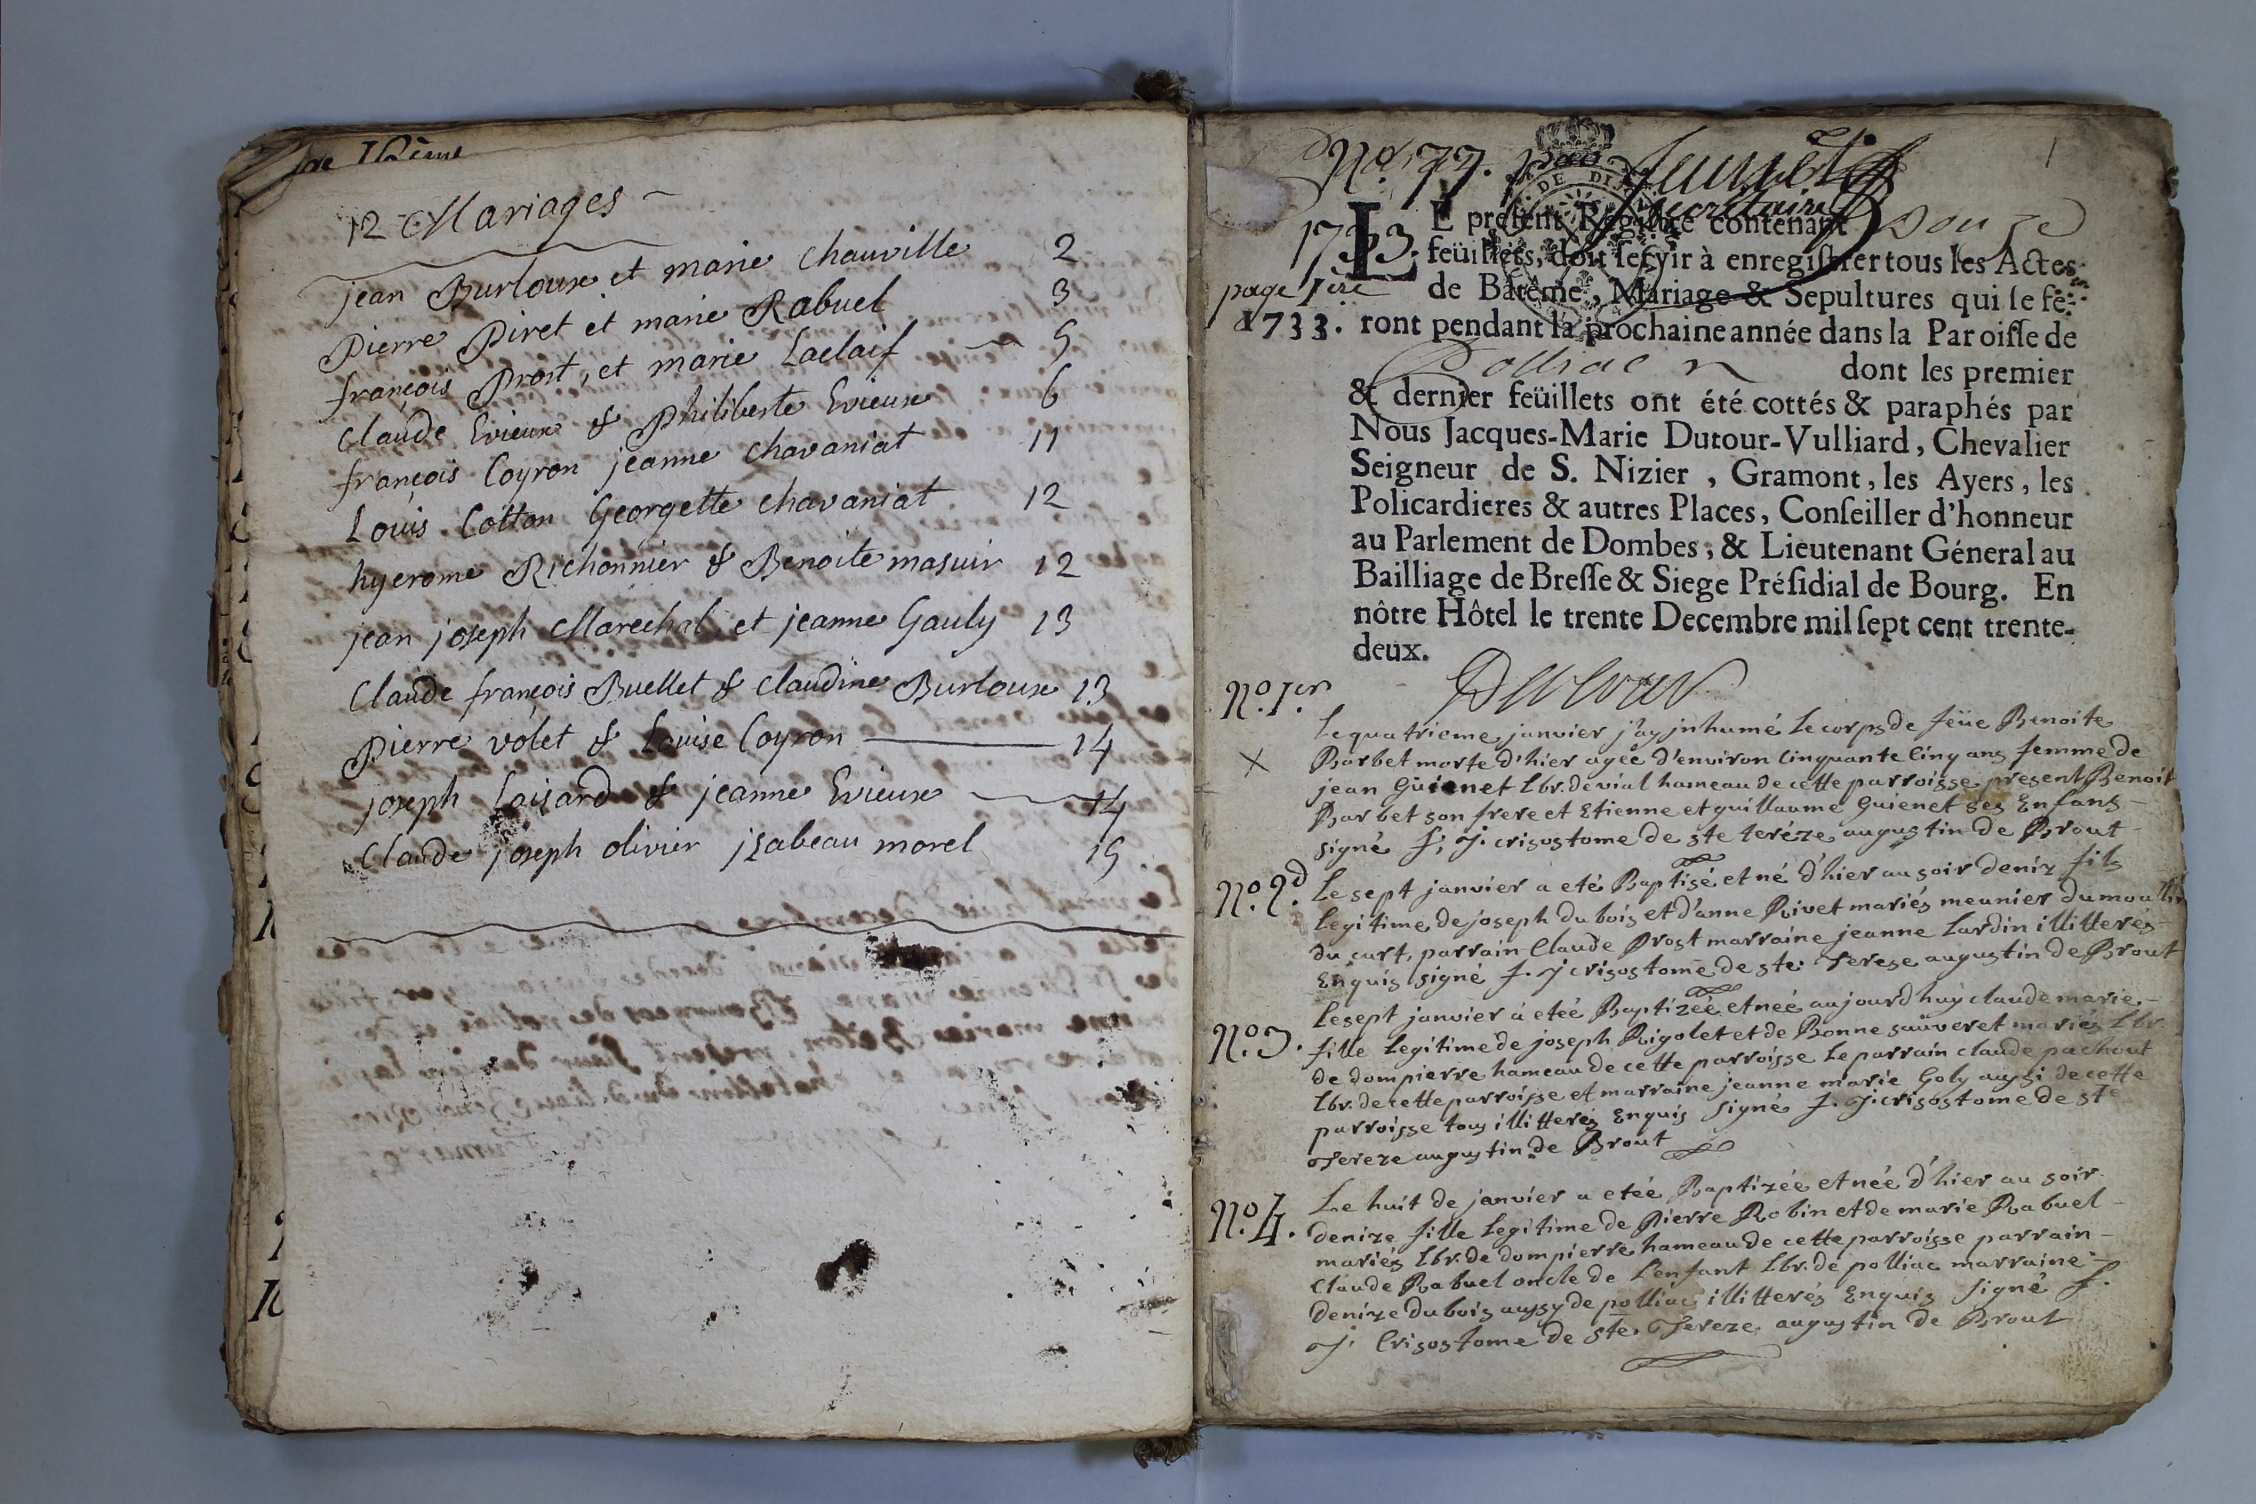 12 Mariages
jean Burloux et marie chauville 2
Pierre Piret et marie Rabuel 3
françois Prost, et marie Laclaif 5
Claude Evieux & Philiberte Evieux 6
françois Coyron jeanne chavaniat 11
Louis Cottan Georgette chavaniat 12
hyerome Richonnier & Benoite masuir 12
jean joseph Marechal et jeanne Gauly 13
Claude françois Buellet & Claudine Burloux 13
Pierre volet & Louise Coyron 14
joseph Loisard & jeanne Evieux 14
Claude joseph olivier jsabeau morel 15
No. 77.
Secretaire
1733.
LE present Registre contenant Douze
feüillets, doit servir à enregistrer tous les Actes
page 1ere
de Batême, Mariage & Sepultures qui se fe-
1733. ront pendant la prochaine année dans la Paroisse de
Polliac dont les premier
& dernier feüillets ont été cottés & paraphés par
Nous Jacques-Marie Dutour-Vulliard, Chevalier
Seigneur de S. Nizier, Gramont, les Ayers, les
Policardieres & autres Places, Conseiller d'honneur
au Parlement de Dombes, & Lieutenant Géneral au
Bailliage de Bresse & Siege Présidial de Bourg. En
nôtre Hôtel le trente Decembre mil sept cent trente-
deux.
Dutour
No. 1er
Le quatrieme janvier j'ay jnhumé le corps de feüe Benoite
Barbet morte d'hier agée d'environ Cinquante Cinq ans femme de
jean Guienet lbr. de vial hameau de cette parroisse present Benoit
Barbet son frere et Etienne et guillaume Guienet ses Enfans
signé f. J. crisostome de ste teréze augustin de Brout
No. 2d
Le sept janvier a eté Baptisé et né d'hier au soir deniz fils
legitime de joseph du bois et d'anne Rivet mariés meunier du moulin
du curt, parrain Claude Prost marraine jeanne Lardin illitterés
Enquis signé f. j crisostome de ste. Tereze augustin de Brout
Le sept janvier á etée Baptizée et née aujourd'huy claude marie
No. 3. fille legitime de joseph Rigolet et de Bonne sauveret mariés lbr.
de dompierre hameau de cette parroisse Le parrain claude pachout
lbr. de cette parroisse et marraine jeanne marie Goly aussi de cette
parroisse tous illitterés Enquis signé f. J. crisostome de ste
Tereze augustin de Brout
No. 4.
Le huit de janvier a etée Baptizée et née d'hier au soir
denize fille legitime de Pierre Robin et de marie Rabuel
mariés lbr. de dompierre hameau de cette parroisse parrain
Claude Rabuel oncle de l'enfant lbr. de polliac marraine
denize dubois aussy de polliac illitterés Enquis signé f.
J. Crisostome de ste. Tereze augustin de Brout